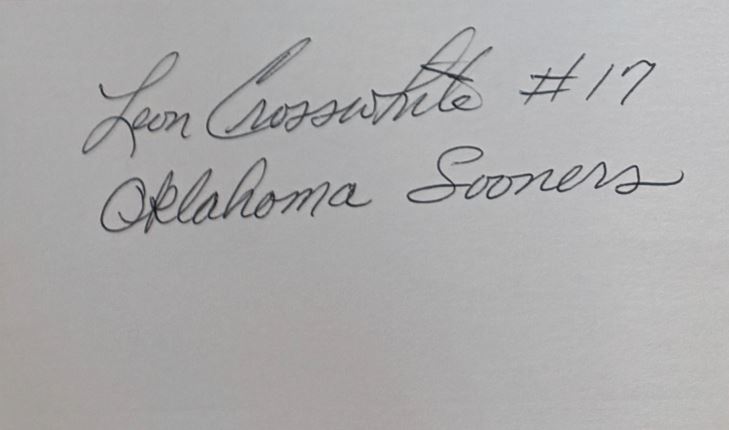 Leon Crosswhite #17
Oklahoma Sooners